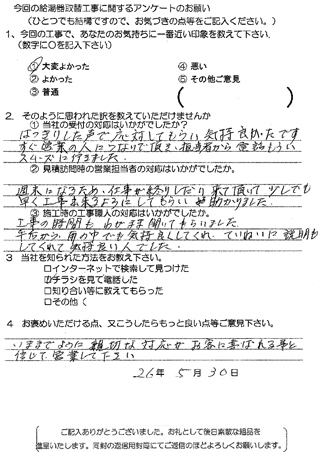 今回の給湯器取替工事に関するアンケートのお願い
(ひとつでも結構ですので、お気づきの点等をご記入ください。)
1、今回の工事で、あなたのお気持ちに一番近い印象を教えて下さい。
(数字に○を記入下さい)
① 大変よかった ④ 悪い
② よかった ⑤ その他ご意見
③ 普通 ( )
2. そのように思われた訳を教えていただけませんか
① 当社の受付の対応はいかがでしたか?
はっきりした声で応対してもらい気持良かったです
すぐ営業の人につないで頂き、担当者から電話もらい
スムーズに行きました。
② 見積訪問時の営業担当者の対応はいかがでしたか。
週末になるため、仕事が終りしだい来て頂いて少しでも
早く工事出来るようにしてもらい助かりました。
③ 施工時の工事職人の対応はいかがでしたか。
工事の時間も わがまま聞いてもらいました
午后から、雨の中でも気持良くしてくれ、ていねいに説明も
してくれて気持良い人でした。
3 当社を知られた方法をお教え下さい。
□インターネットで検索して見つけた
☑チラシを見て電話した
□知り合い等に教えてもらった
□その他(
4 お褒めいただける点、又こうしたらもっと良い点等ご意見下さい。
いままでように親切な対応がお客に喜ばれる事と
信じて営業して下さい
26年 5月 30日
ご記入ありがとうございました。お礼として後日素敵な粗品を
進呈いたします。同封の返信用封筒にてご返信のほどよろしくお願いします。